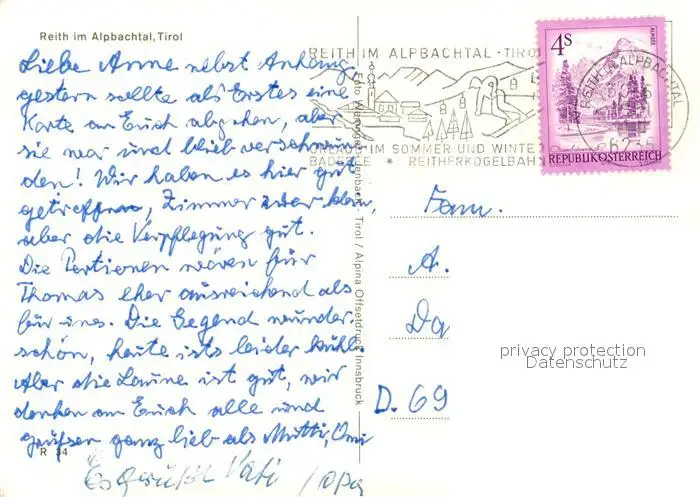 Reith im Alpbachtal, Tirol
Liebe Anne nebst Anhang,
gestern sollte als Erstes eine
Karte an Euch abgehen, aber
sie war und blieb verschwun
den! Wir haben es hier gut
getroffen, Zimmer zwar klein,
aber die Verpflegung gut.
Die Portionen wären für
Thomas eher ausreichend als
für uns. Die Gegend wunder-
schön, heute ists leider kühl.
Aber die Laune ist gut, wir
denken an Euch alle und
grüßen ganz lieb als Mutti, Omi
R 34
Es grüßt Vati / Opa
Jenbach, Tirol / Alpina Offsetdruck Innsbruck
REITH IM ALPBACHTAL - TIROL
URLAUB IM SOMMER UND WINTER
BADESEE * REITHERKOGELBAHN
4S
ALMSEE
REPUBLIK ÖSTERREICH
REITH IM ALPBACHTAL
6235
Fam.
A.
Da
D. 69
privacy protection
Datenschutz